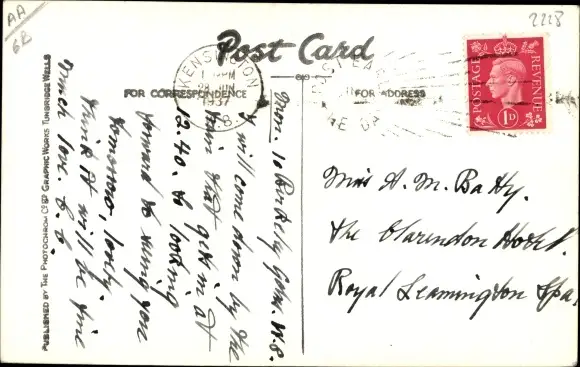 AA
6B
2228
Post Card
FOR CORRESPONDENCE
FOR ADDRESS
KENSINGTON
1937
W.8
POST EARLY
IN
THE DAY
POSTAGE
REVENUE
1D
From. 10 Berkeley Gdns. W.8.
I will come down by the
train that gets in at
12.40. So looking
forward to seeing you
tomorrow, lovely.
think it will be fine
much love.
Miss A. M. Batty.
The Clarendon Hotel.
Royal Leamington Spa.
PUBLISHED BY THE PHOTOCHROM CO LTD GRAPHIC WORKS TUNBRIDGE WELLS